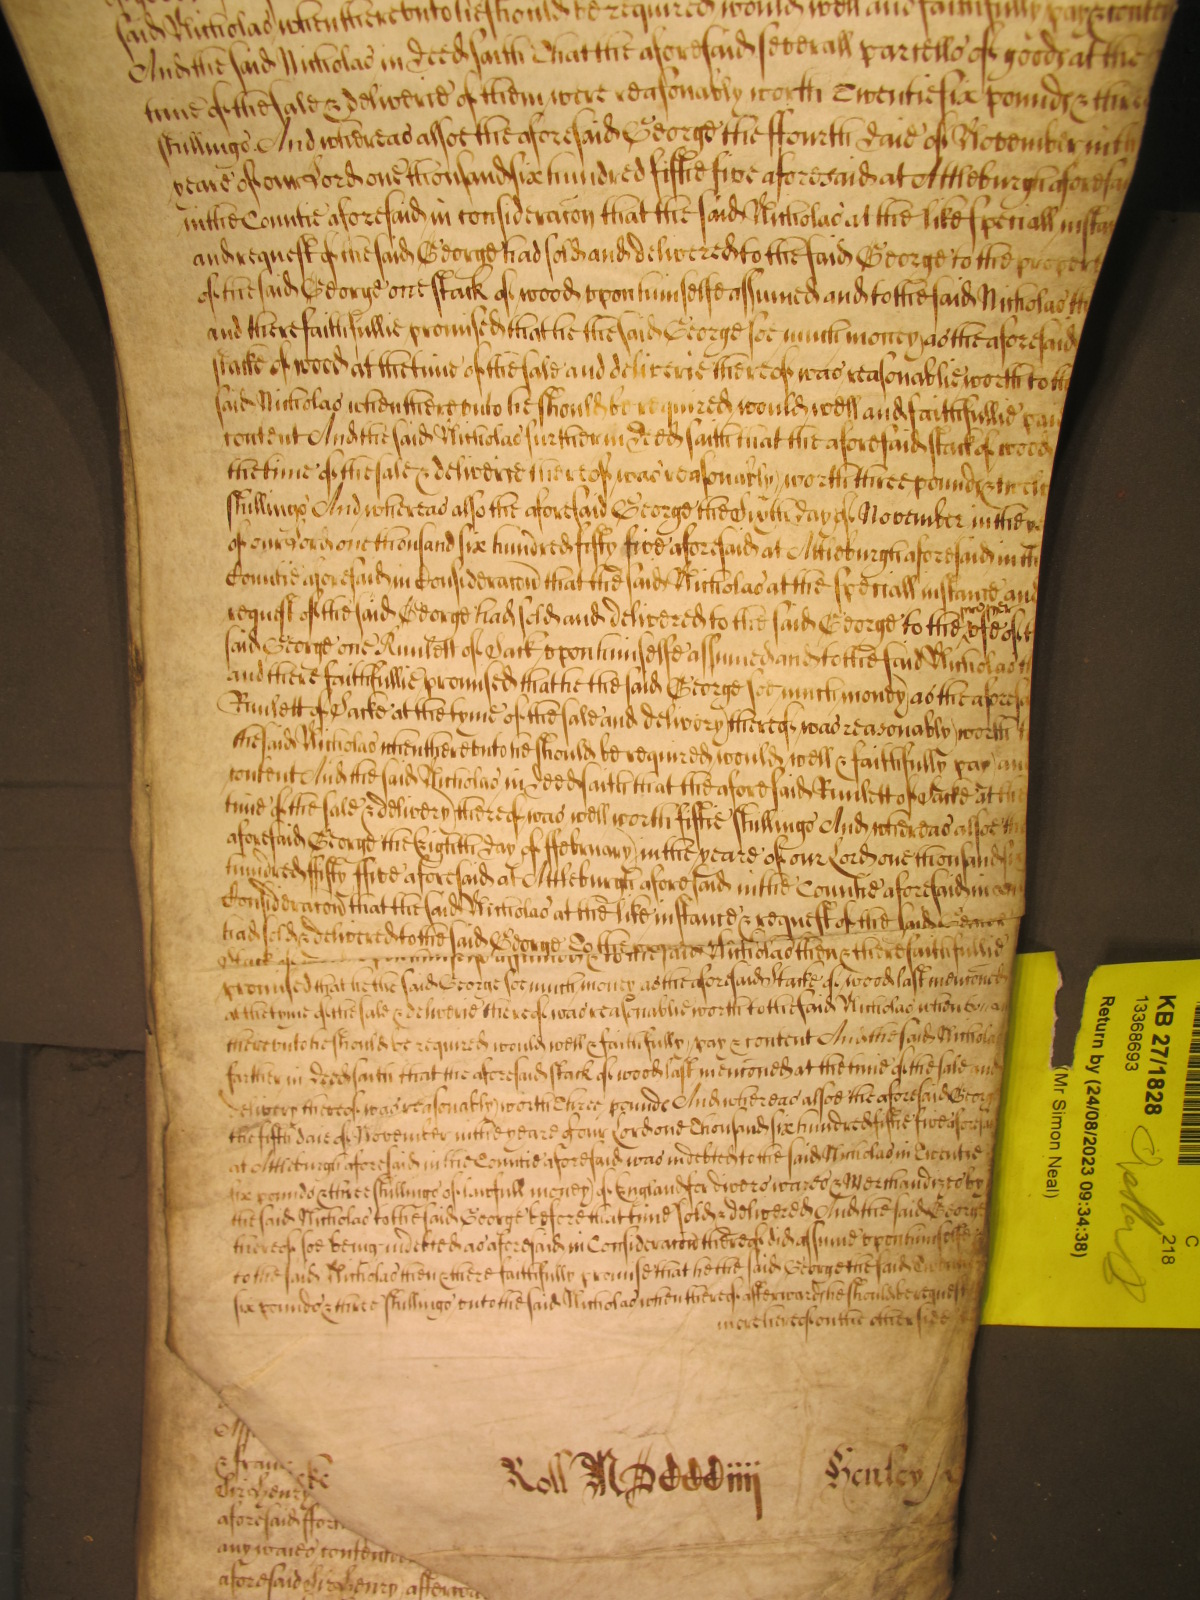 said Nicholas when thereunto he should be required would well and faithfully pay & content
And the said Nicholas in deed saith That the aforesaid severall parcells of goods at the
tyme of the sale & deliverie of them were reasonably worth Twentie six pounds & three
shillings And whereas alsoe the aforesaid George the ffourth daie of November in the
yeare of our Lord one thousand six hundred fiftie five aforesaid at Attleburgh aforesaid
in the Countie aforesaid in consideracon that the said Nicholas at the like speciall instan
and request of the said George had sold and delivered to the said George to the proper
of the said George one stack of wood upon himselfe assumed and to the said Nicholas th
and there faithfullie promised that he the said George soe much money as the aforesaid
stacke of wood at the time of the sale and deliverie thereof was reasonablie worth to the
said Nicholas when thereunto he should be required would well and faithfullie pay
content And the said Nicholas further in deed saith that the aforesaid stack of wood
the time of the sale & deliverie thereof was reasonably worth three pounds &
shillings And whereas also the aforesaid George the Sixth day of November in the ye
of our Lord one thousand six hundred fifty five aforesaid at Attleburgh aforesaid in the
Countie aforesaid in Consideracon that the said Nicholas at the speciall instance and
request of the said George had sold and delivered to the said George to the proper use of t
said George one Runlett of Sack upon himselfe assumed and to the said Nicholas t
and there faithfullie promised that he the said George soe much money as the aforesa
Runlett of Sacke at the tyme of the sale and delivery thereof was reasonably worth t
the said Nicholas when thereunto he should be required would well & faithfully pay and
content And the said Nicholas in deed saith that the aforesaid Runlett of Sacke at the
time of the sale & delivery thereof was well worth fiftie shillings And whereas alsoe the
aforesaid George the Eighth day of ffebruary in the yeare of our Lord one thousand six
hundred ffifty ffive aforesaid at Attleburgh aforesaid in the Countie aforesaid in
Consideracon that the said Nicholas at the like instance & request of the said George
had sold & delivered to the said George to the Nicholas then & there faithfullie
stack of
promised that he the said George soe much money as the aforesaid stacke of wood last mencioned
at the tyme of the sale & deliverie thereof was reasonablie worth to the said Nicholas when
thereunto he should be required would well & faithfully pay & content And the said Nicholas
farther in deed saith that the aforesaid stack of wood last mencioned at the time of the sale and
delivery thereof was reasonably worth Three pounds And whereas alsoe the aforesaid George
the fifth daie of November in the yeare of our Lord one Thousand six hundred fiftie five aforesaid
at Attleburgh aforesaid in the Countie aforesaid was indebted to the said Nicholas in Twentie
six pounds & three shillings of lawfull money of England for divers wares & Merchandizes by
the said Nicholas to the said George before that time sold & delivered And the said George
thereof soe being indebted as aforesaid in Consideracon thereof did assume upon himselfe &
to the said Nicholas then & there faithfully promise that he the said George the said Twentie
six pounds & three shillings unto the said Nicholas when thereof afterward he should be request
more hereof on the other side
Roll MDCCCiiii Henley
& franc
Sir Henry
aforesaid
any waies content
aforesaid Sir Henry afterwa
KB 27/1828
13368693
C
218
Return by (24/08/2023 09:34:38)
(Mr Simon Neal)